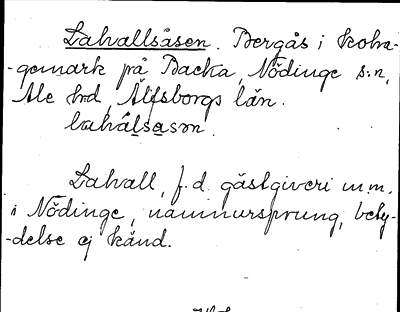 Lahallsåsen. Bergås i
-gemark på Backa, Nödinge s:n,
Ale hd, Älfsborgs län.
Lahall, f.d. gästgiveri m.m.
i Nödinge, namnursprung, bety-
-delse ej känd.